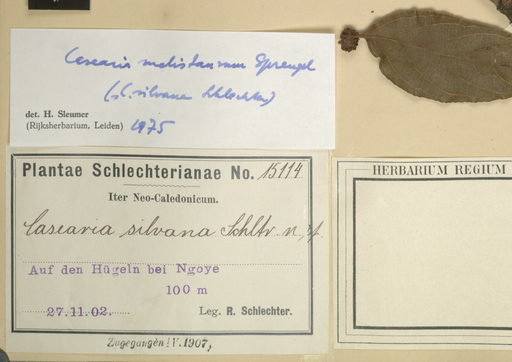 Casearia melistaurum Sprengel
(C. silvana Schlechter)
det. H. Sleumer
(Rijksherbarium, Leiden) 1975
Plantae Schlechterianae No. 15114
Iter Neo-Caledonicum.
Casearia silvana Schltr. n. sp.
Auf den Hügeln bei Ngoye
100 m
27.11.02.
Leg. R. Schlechter.
Zugegangen IV. 1907,
HERBARIUM REGIUM